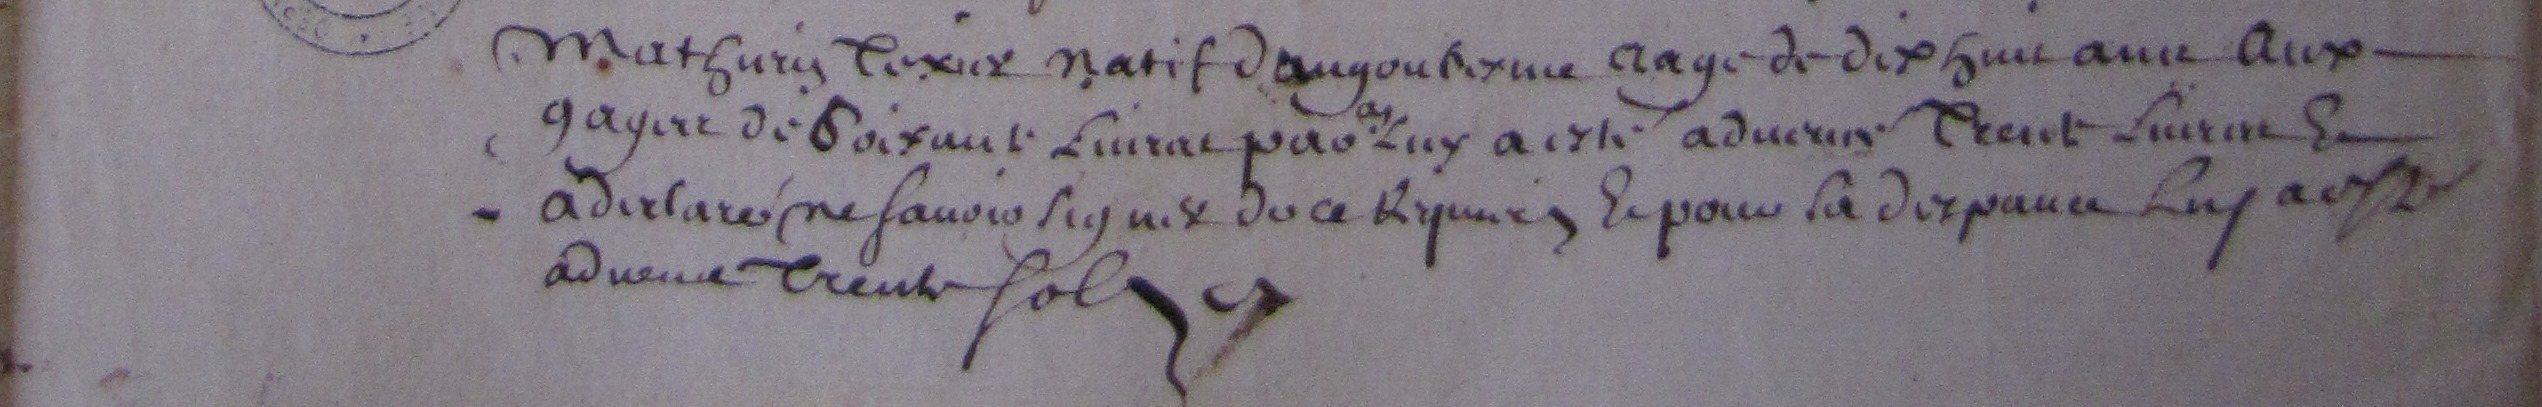 Mathurin Texier natif dangoulesme aage de dix huit ans Aux
gages de Soixante Livres par an Luy a esté advancé Trente Livres Et
a declaré ne savoir signer de ce requis Et pour sa despance Luy a esté
advancé Trente sols